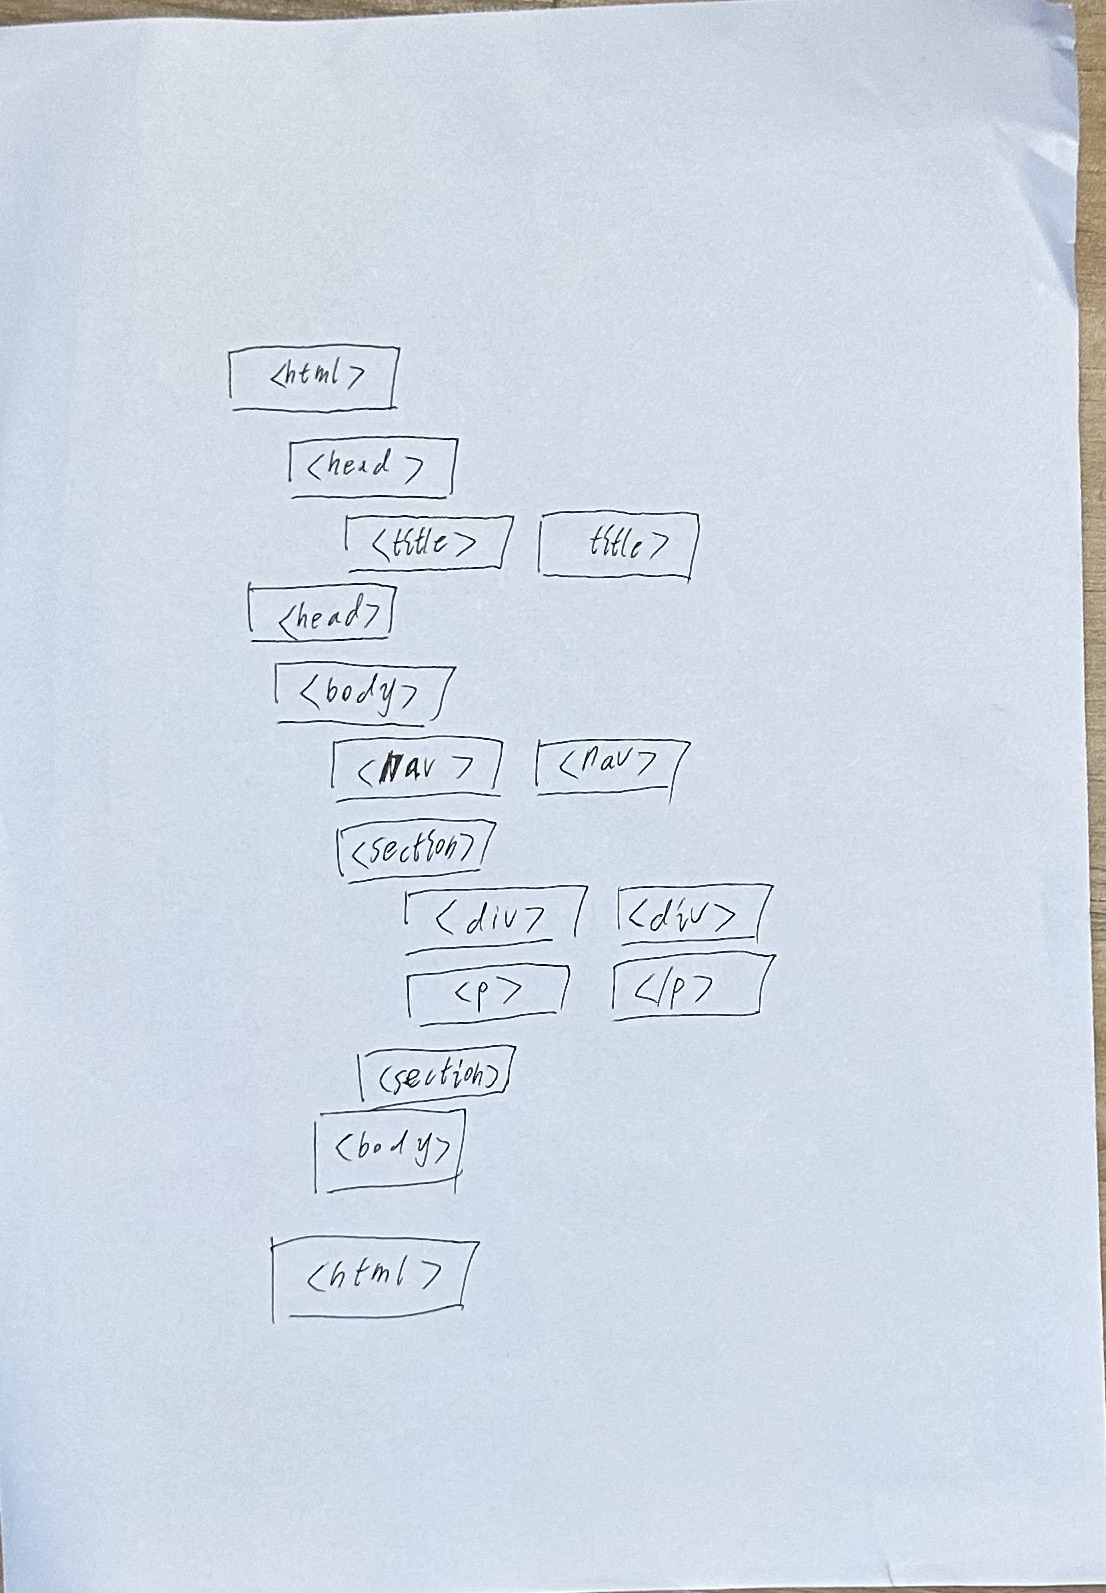 <html>
<head>
<title> title>
<head>
<body>
<nav> <nav>
<section>
<div> <div>
<p> </p>
<section>
<body>
<html>